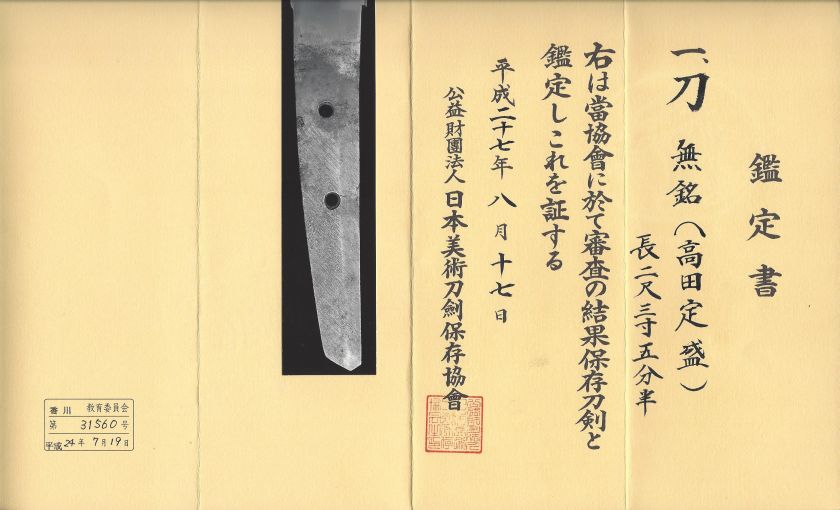 鑑定書
一、刀 無銘(高田定盛)
長二尺三寸五分半
右は當協會に於て審査の結果保存刀剣と
鑑定しこれを証する
平成二十七年八月十七日
公益財團法人 日本美術刀劍保存協會
香川 教育委員会
第 31560 号
平成 24年 7月19日